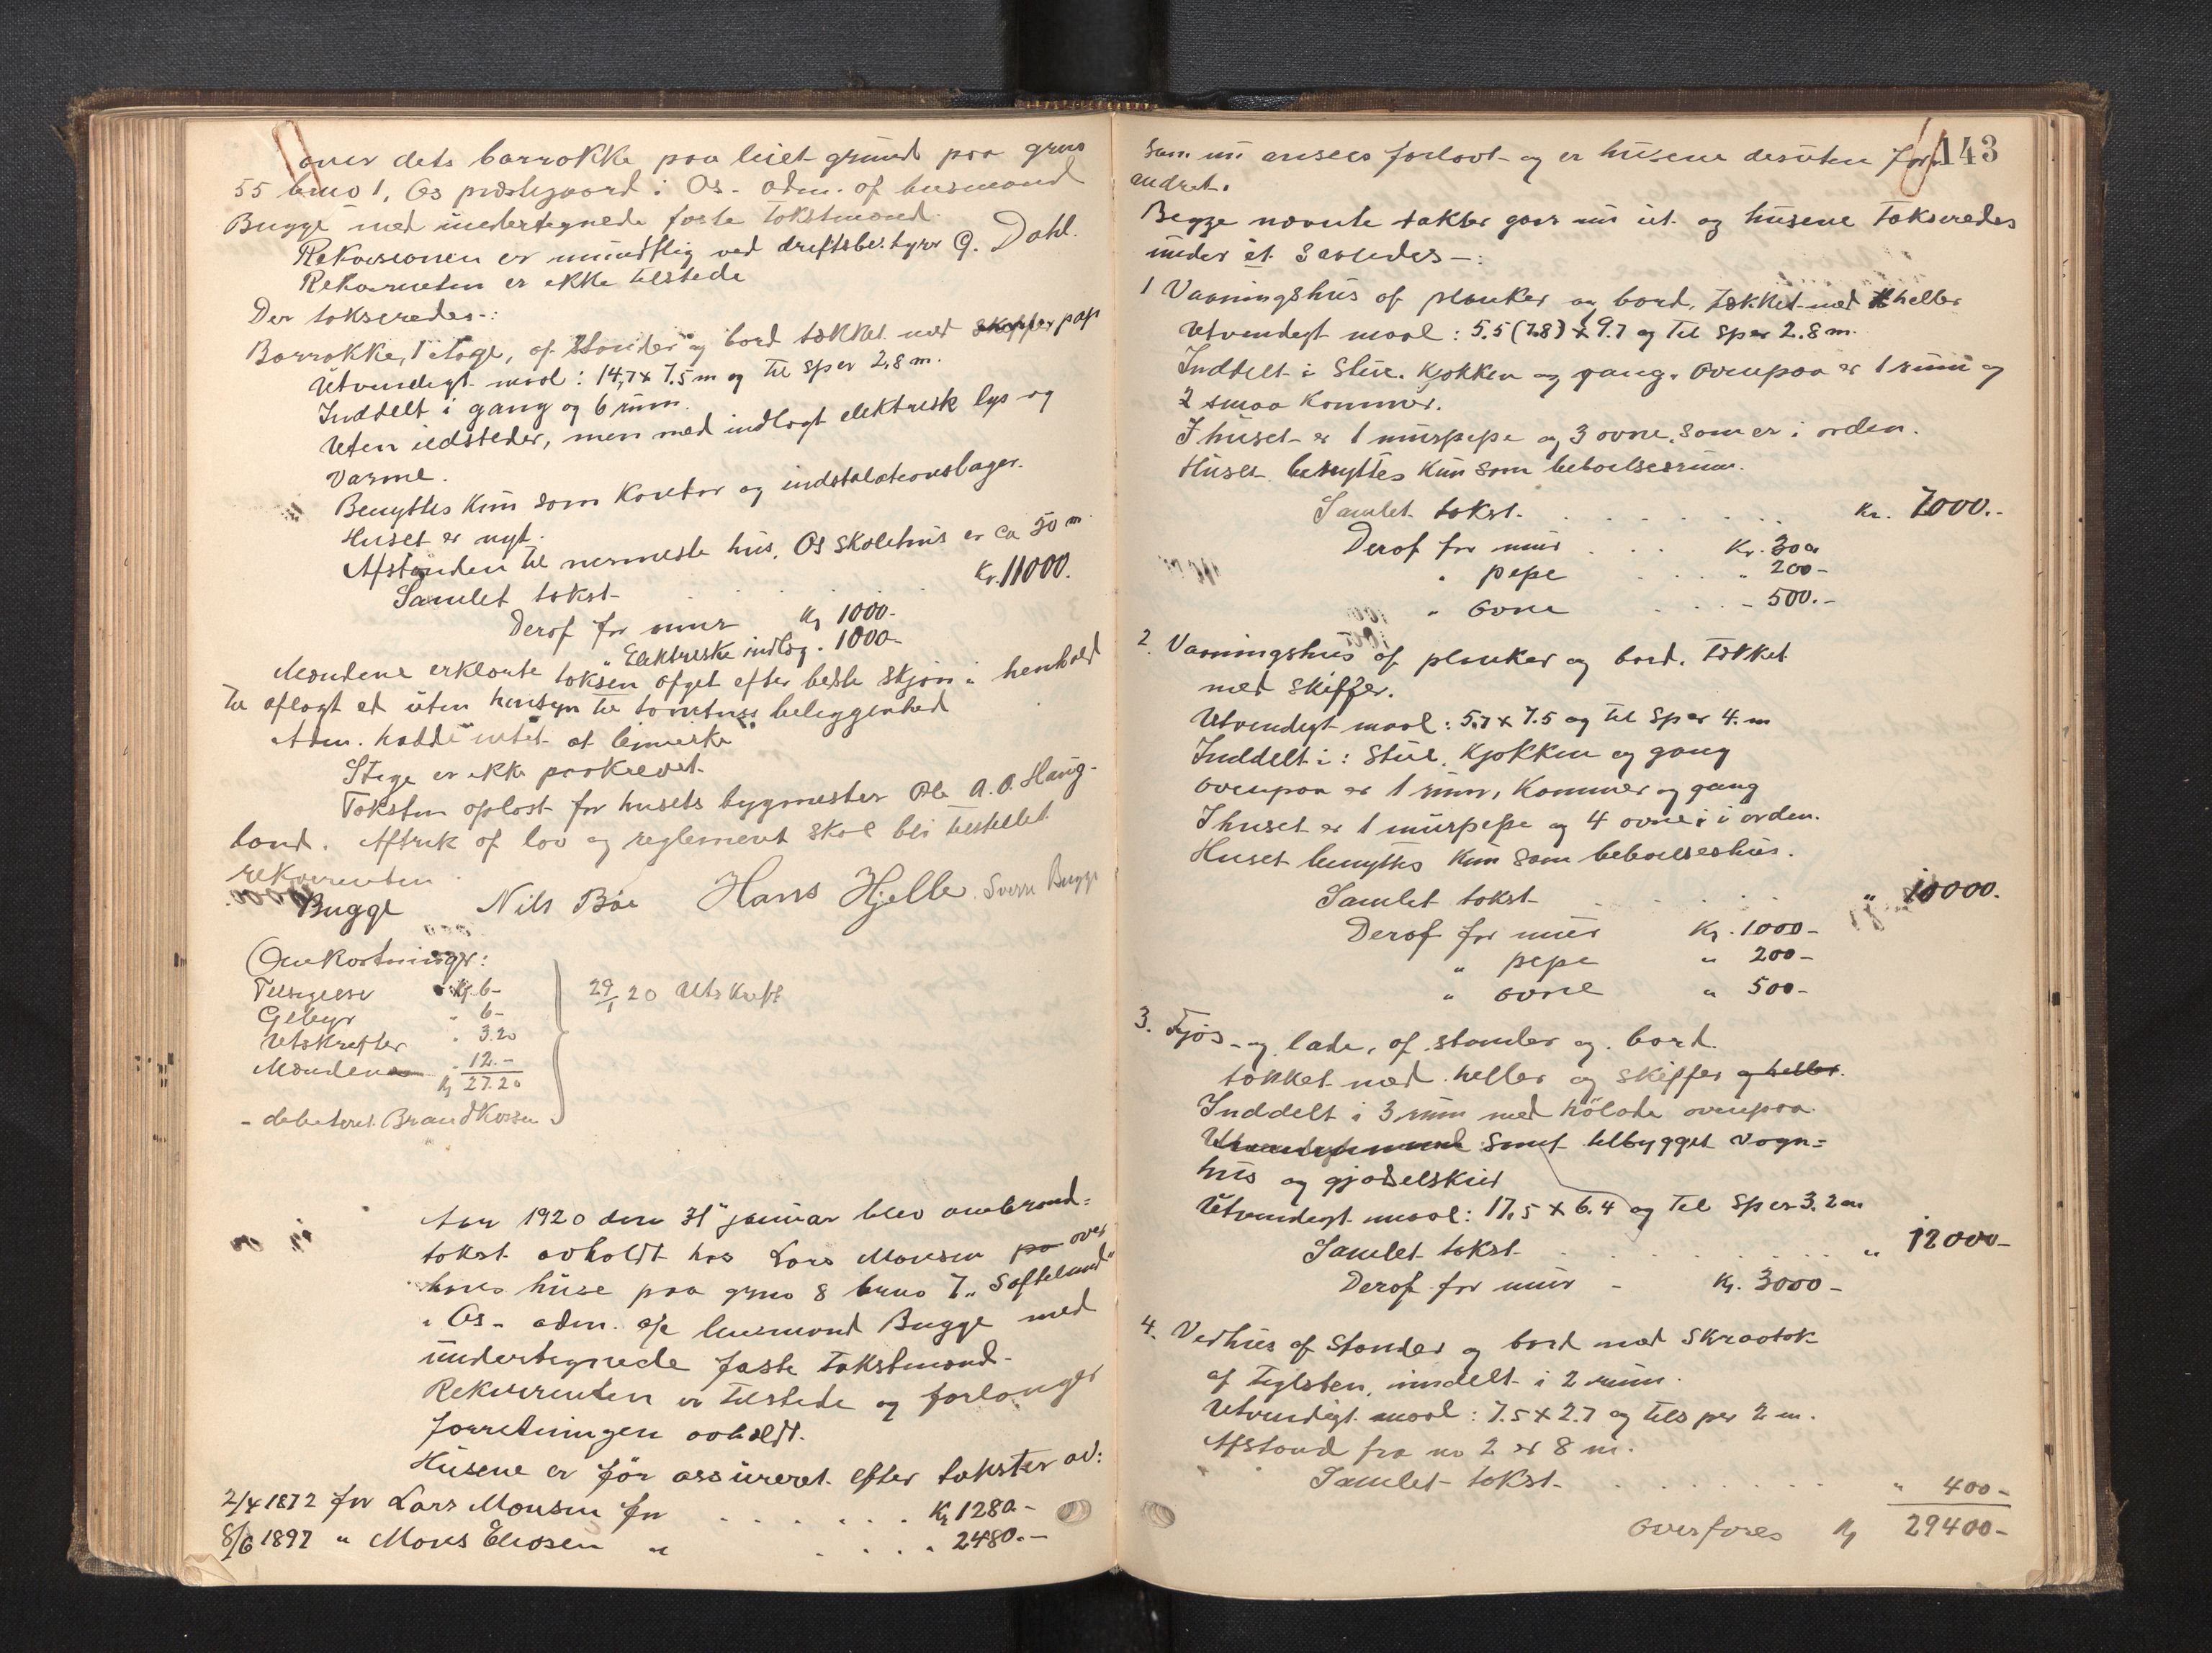 over dets barrakke paa leiet grund paa grno
55 brno 1, Os prestegaard i Os - adm. af lensmand
Bugge med undertegnede faste takstmænd.
Rekvisionen er mundtlig ved driftsbestyrer G. Dahl.
Rekvirenten er ikke tilstede
Der takseredes:
Barrakke, 1 etage, af stander og bord tækket med skiffer pap
Utvendigt maal: 14,7 x 7.5 m og til sper 2,8 m.
Inddelt i gang og 6 rum.
Uten ildsteder, men med indlagt elektrisk lys og
varme.
Benyttes kun som kontor og indstalationslager.
Huset er nyt.
Afstanden til nærmeste hus, Os skolehus er ca 50 m
Samlet takst Kr. 11000.
Deraf for mur Kr 1000-
" Elektriske indlæg . 1000-
Mændene erklærte taksten afgit efter beste skjøn i henhold
til aflagt ed uten hensyn til tomtens beliggenhed
Adm. hadde intet at bemerke
Stige er ikke paakrevet.
Taksten oplæst for husets bygmester Ole A. O. Haug-
land. Aftrik af lov og reglement skal bli tilstillet
rekvirenten.
Bugge Nils Bøe Hans Hjelle Sverre Bugge
Omkostninger:
Tilsigelse Kr. 6-
Gebyr " 6-
Utskrifter " 3.20
Mændene - 12.-
Kr 27.20
- debiteret Brandkassen
29/1 20 Utskrift
Aar 1920 den 31 januar blev ombrand-
takst avholdt hos Lars Monsen pa over
hans huse paa grno 8 brno 7 "Søfteland"
i Os - adm. af lensmand Bugge med
undertegnede faste takstmænd -
Rekvirenten er tilstede og forlanger
forretningen avholdt.
Husene er før assureret efter takster av:
2/4 1872 for Lars Monsen for . . . . . . Kr 1280-
8/6 1897 " Mons Eliasen " . . . . 2480.-
143
som nu ansees forlavt og er husene desuten for-
andret.
Begge nævnte takster gaar nu ut og husene takseredes
under et saaledes -:
1 Vaaningshus af planker og bord, tækket med heller
Utvendigt maal: 5.5 (7.8) x 9.7 og til sper 2.8 m.
Inddelt i stue, kjøkken og gang. Ovenpaa er 1 rum og
2 smaa kammer.
I huset er 1 murpipe og 3 ovne, som er i orden.
Huset benyttes kun som beboelsesrum.
Samlet takst. . . . . . . . Kr. 7000.-
Deraf for mur . . . Kr. 300
" pipe . . . " 200-
" ovne . . . - 500.-
2. Vaaningshus af planker og bord. tækket
med skiffer.
Utvendigt maal: 5.7 x 7.5 og til sper 4. m
Inddelt i: stue, kjøkken og gang
ovenpaa er 1 rum, kammer og gang
I huset er 1 murpipe og 4 ovne: i orden.
Huset benyttes kun som beboelseshus.
Samlet takst . . . . . " 10000.
Deraf for mur Kr. 1000-
" pipe " 200-
" ovne " 500-
3. Fjøs- og lade, af stander og bord.
tækket med heller og skiffer og heller.
Inddelt i 3 rum med hølade ovenpaa.
Utvendigt maal samt tilbygget vogn-
hus og gjødselskur
Utvendigt maal: 17.5 x 6.4 og til sper 3.2 m
Samlet takst . . . . . . . " 12000-
Deraf for mur - Kr. 3000-
4. Vedhus af stander og bord med skraatak
af teglsten, inndelt i 2 rum.
Utvendigt maal: 7.5 x 2.7 og til sper 2 m.
Afstand fra no 2 er 8 m.
Samlet takst . . . . . . . " 400-
Overføres Kr 29400-